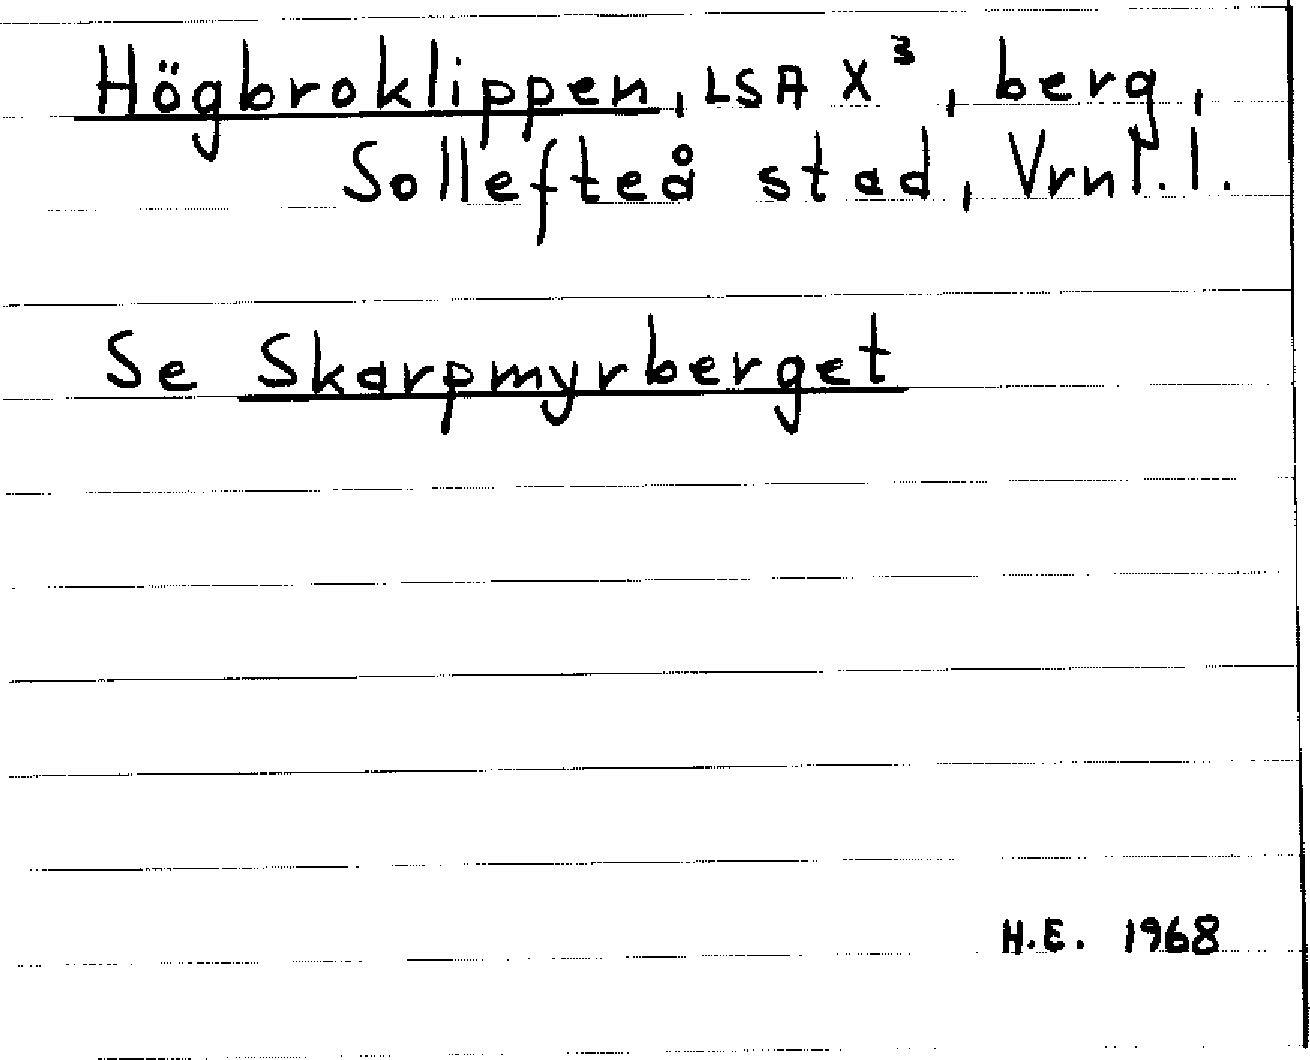 Högbroklippen, LSA X³, berg,
Sollefteå stad, Vrnl.l.
Se Skarpmyrberget
H.E. 1968